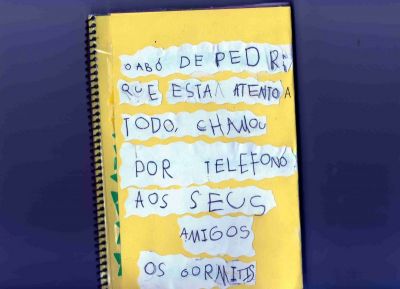 O ABÓ DE PEDRI,
QUE ESTA ATENTO A
TODO, CHAMOU
POR TELEFONO
AOS SEUS
AMIGOS
OS GORMITIS